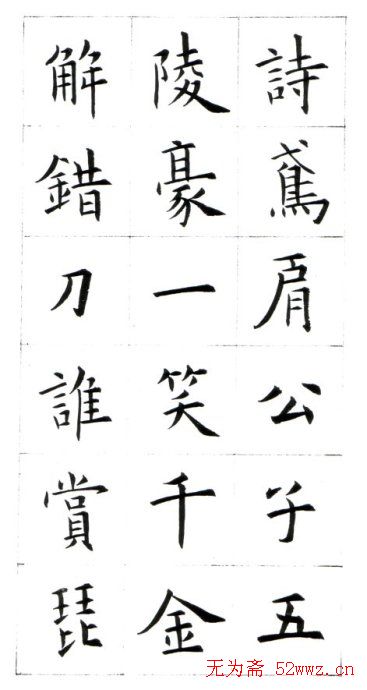 詩鳶肩公子五
陵豪一笑千金
解錯刀誰賞琵
无为斋 52wwz.cn